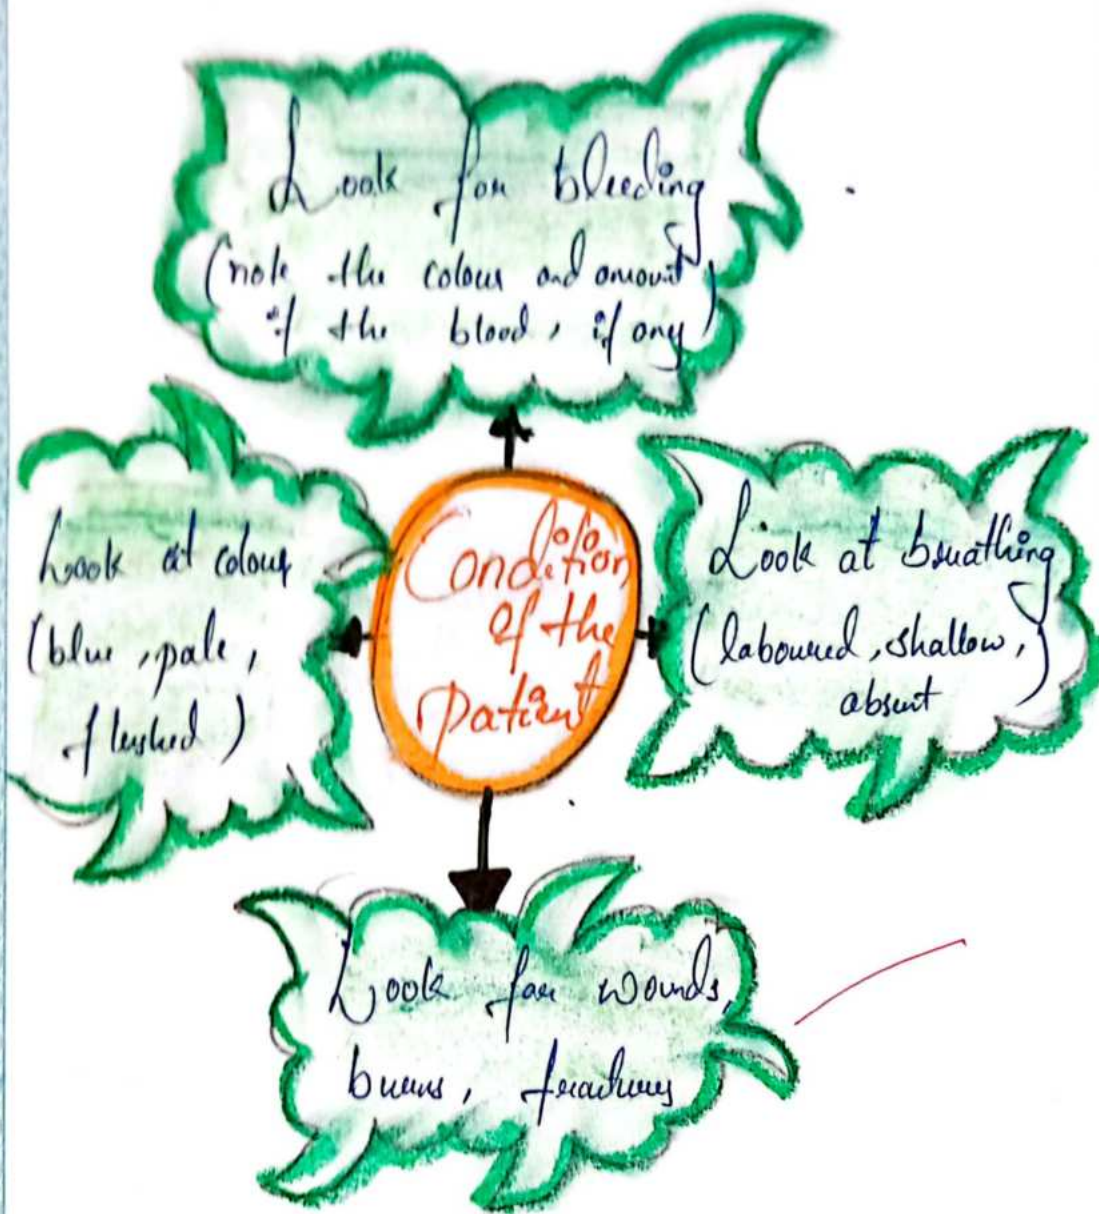 Look for bleeding
(note the colour and amount
of the blood, if any)
Look at colour
(blue, pale,
flushed)
Condition
of the
patient
Look at breathing
(laboured, shallow,
absent)
Look for wounds,
burns, fractures